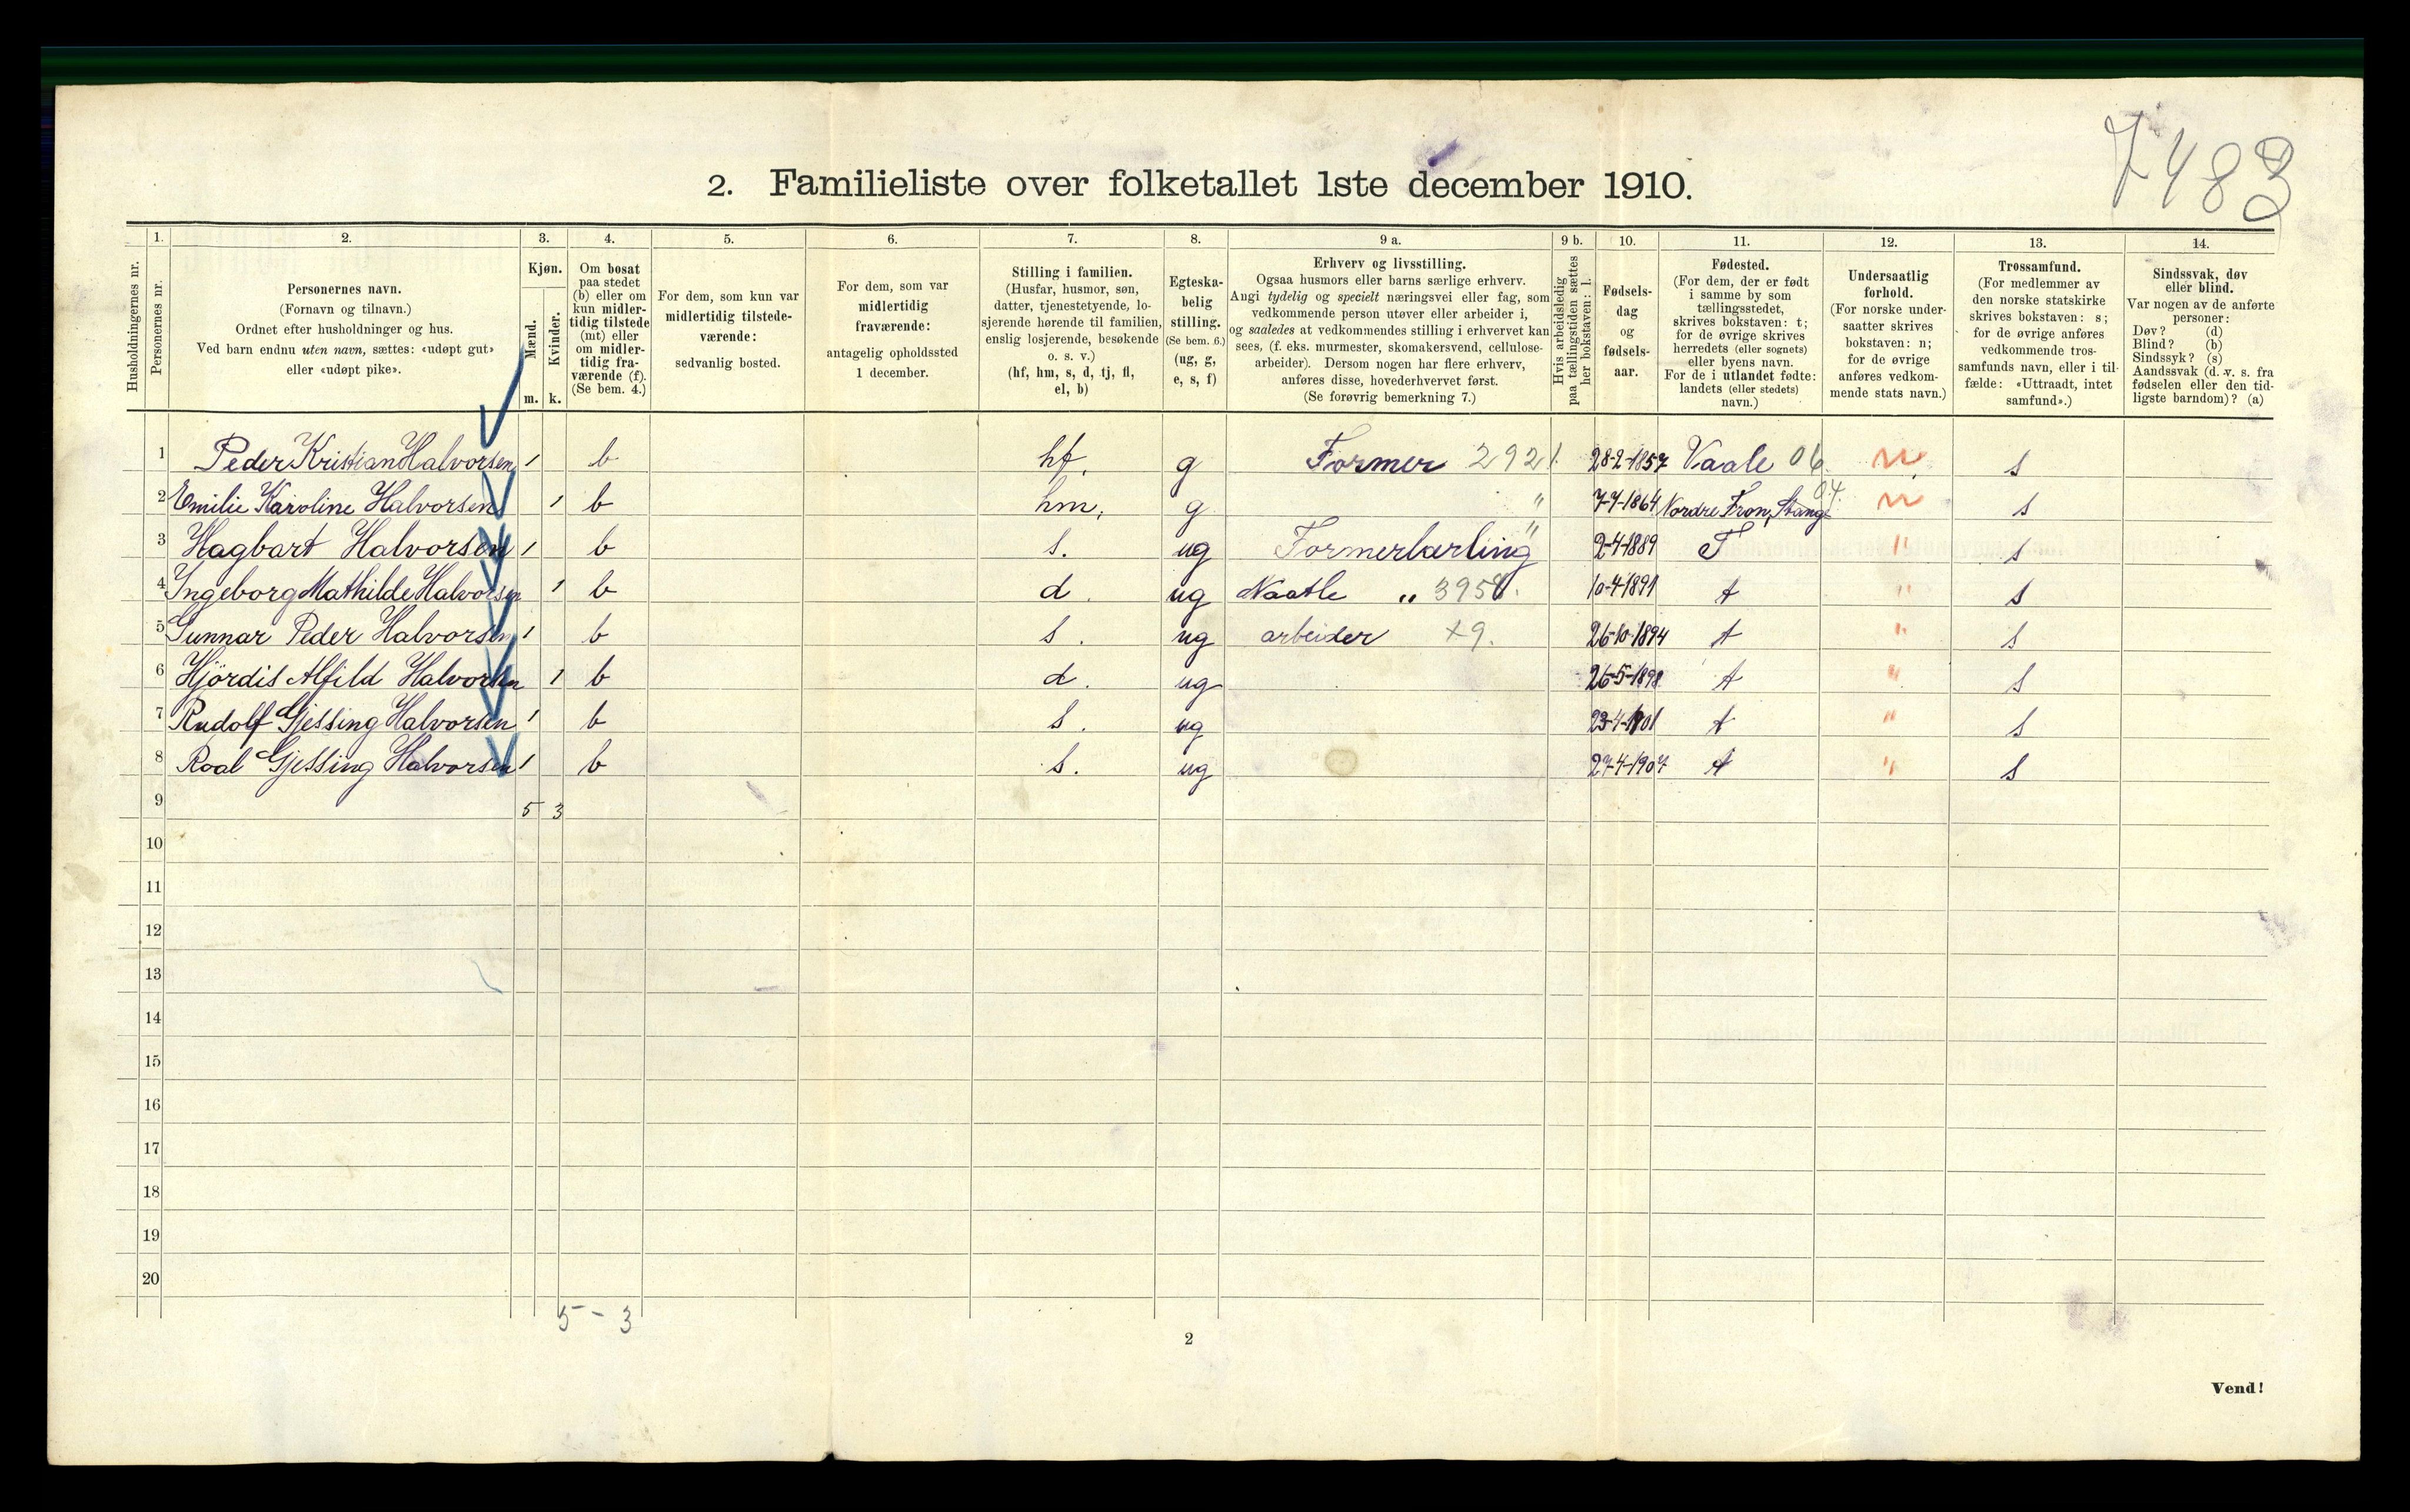 7483
2. Familieliste over folketallet 1ste december 1910.
1. 2. 3. 4. 5. 6. 7. 8. 9 a. 9 b. 10. 11. 12. 13. 14.
Husholdningernes nr.
Personernes nr.
Personernes navn.
(Fornavn og tilnavn.)
Ordnet efter husholdninger og hus.
Ved barn endnu uten navn, sættes: «udøpt gut»
eller «udøpt pike».
Kjøn.
Mænd.
Kvinder.
m. k.
Om bosat
paa stedet
(b) eller om
kun midler-
tidig tilstede
(mt) eller
om midler-
tidig fra-
værende (f).
(Se bem. 4.)
For dem, som kun var
midlertidig tilstede-
værende:
sedvanlig bosted.
For dem, som var
midlertidig
fraværende:
antagelig opholdssted
1 december.
Stilling i familien.
(Husfar, husmor, søn,
datter, tjenestetyende, lo-
sjerende hørende til familien,
enslig losjerende, besøkende
o. s. v.)
(hf, hm, s, d, tj, fl,
el, b)
Egteska-
belig
stilling.
(Se bem. 6.)
(ug, g,
e, s, f)
Erhverv og livsstilling.
Ogsaa husmors eller barns særlige erhverv.
Angi tydelig og specielt næringsvei eller fag, som
vedkommende person utøver eller arbeider i,
og saaledes at vedkommendes stilling i erhvervet kan
sees, (f. eks. murmester, skomakersvend, cellulose-
arbeider). Dersom nogen har flere erhverv,
anføres disse, hovederhvervet først.
(Se forøvrig bemerkning 7.)
Hvis arbeidsledig
paa tællingstiden sættes
her bokstaven: l.
Fødsels-
dag
og
fødsels-
aar.
Fødested.
(For dem, der er født
i samme by som
tællingsstedet,
skrives bokstaven: t;
for de øvrige skrives
herredets (eller sognets)
eller byens navn.
For de i utlandet fødte:
landets (eller stedets)
navn.)
Undersaatlig
forhold.
(For norske under-
saatter skrives
bokstaven: n;
for de øvrige
anføres vedkom-
mende stats navn.)
Trossamfund.
(For medlemmer av
den norske statskirke
skrives bokstaven: s;
for de øvrige anføres
vedkommende tros-
samfunds navn, eller i til-
fælde: «Uttraadt, intet
samfund».)
Sindssvak, døv
eller blind.
Var nogen av de anførte
personer:
Døv? (d)
Blind? (b)
Sindssyk? (s)
Aandssvak (d. v. s. fra
fødselen eller den tid-
ligste barndom)? (a)
1 Peder Kristian Halvorsen 1 b hf. g Former 2921. 28-2-1857 Vaale 06. n s
2 Emilie Karoline Halvorsen 1 b hm. g " 7-7-1864 Nordre Fron, Stange 04. n s
3 Hagbart Halvorsen 1 b s. ug Formerlærling " 2-4-1889 T " s
4 Ingeborg Mathilde Halvorsen 1 b d. ug 10-4-1891 t " s
5 Gunnar Peder Halvorsen 1 b s. ug arbeider 26-10-1894 t " s
6 Hjördis Alfild Halvorsen 1 b d. ug 26-5-1898 t " s
7 Rudolf Gjessing Halvorsen 1 b s. ug 23-4-1901 t " s
8 Roal Gjessing Halvorsen 1 b s. ug 27-4-1907 t " s
9 5 3
10
11
12
13
14
15
16
17
18
19
20
5 - 3
2
Vend!